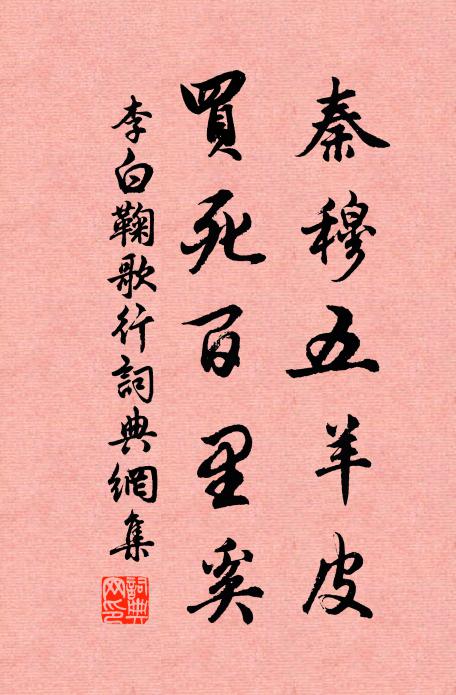 秦穆五羊皮
買死百里奚
李白鞠歌行詞典網集
詞典
网印